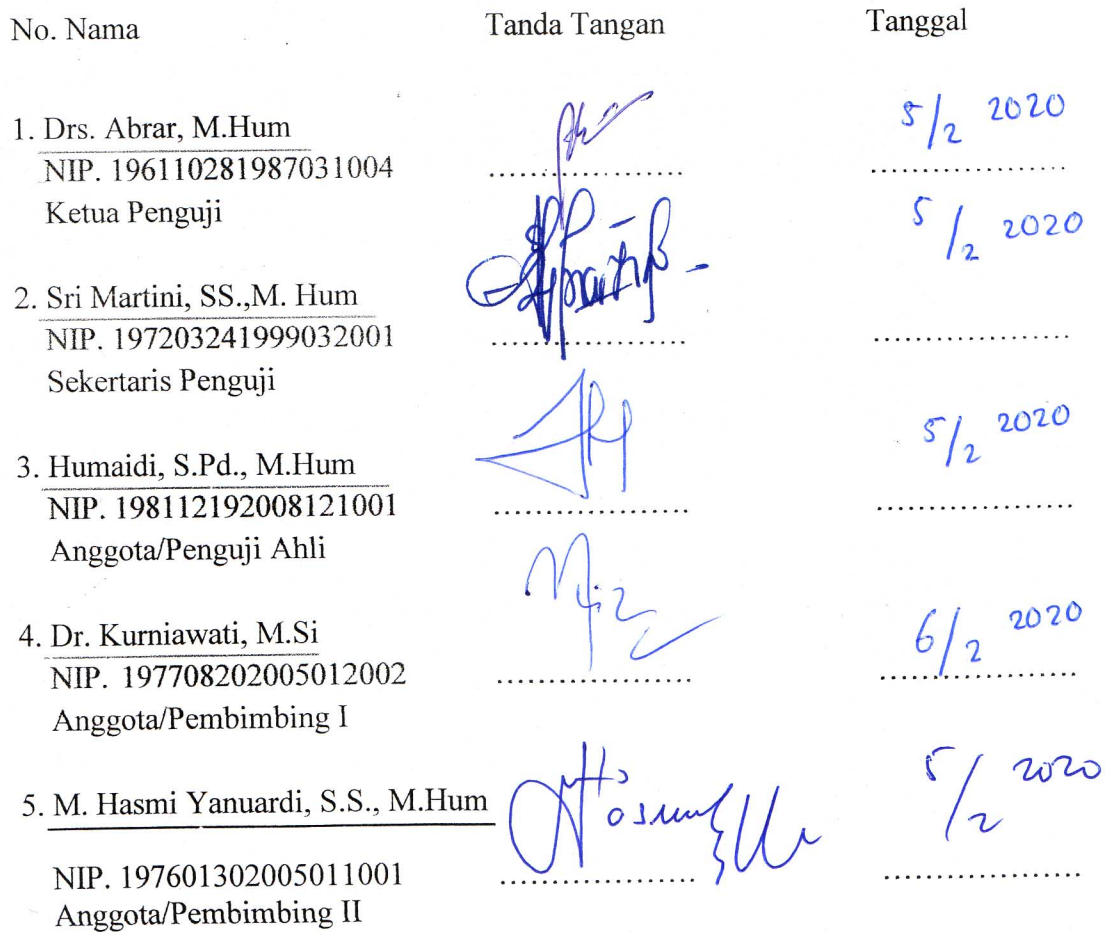 No. Nama Tanda Tangan Tanggal
1. Drs. Abrar, M.Hum 5/2 2020
NIP. 196110281987031004 .................. ..................
Ketua Penguji
5/2 2020
2. Sri Martini, SS.,M. Hum
NIP. 197203241999032001 .................. ..................
Sekertaris Penguji
3. Humaidi, S.Pd., M.Hum 5/2 2020
NIP. 198112192008121001 .................. ..................
Anggota/Penguji Ahli
4. Dr. Kurniawati, M.Si 6/2 2020
NIP. 197708202005012002 .................. ..................
Anggota/Pembimbing I
5. M. Hasmi Yanuardi, S.S., M.Hum 5/2 2020
NIP. 197601302005011001 .................. ..................
Anggota/Pembimbing II